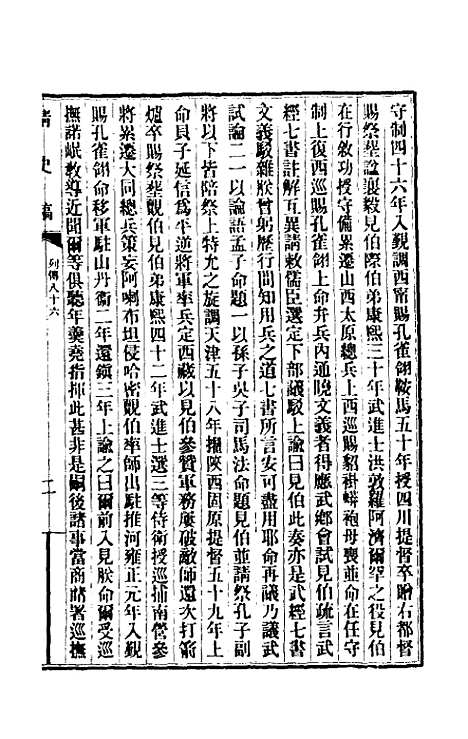 守制四十六年入覲調西甯賜孔雀翎鞍馬五十年授四川提督卒贈右都督
賜祭葬諡襄毅見伯弟康熙三十年武進士洪敦羅阿濟爾罕之役見伯
在行敘功授守備累遷山西太原總兵上西巡賜貂褂蟒袍母喪並命在任守
制上復西巡賜孔雀翎上命弁兵內通曉文義者得應武鄉會試見伯疏言武
經七書註解互異請敕儒臣選定下部議駁上諭曰見伯此奏亦是武經七書
文義駁雜朕曾躬歷行間知用兵之道七書所言安可盡用耶命再議乃議武
試論二一以論語孟子命題一以孫子吳子司馬法命題見伯並請祭孔子副
將以下皆陪祭上特允之旋調天津五十八年擢陝西固原提督五十九年上
命貝子延信為平逆將軍率兵定西藏以見伯參贊軍務屢破敵師還次打箭
爐卒賜祭葬覲伯見伯弟康熙四十二年武進士選三等侍衛授巡捕南營參
將累遷大同總兵策妄阿喇布坦侵哈密覲伯率師出駐推河雍正元年入覲
賜孔雀翎命移軍駐山丹衛二年還鎮三年上諭之曰爾前入見朕命爾受巡
撫諾岷敎導近聞爾等俱聽年羹堯指揮此甚非是嗣後諸事當商酌署巡撫
清史稿
列傳八十六
二